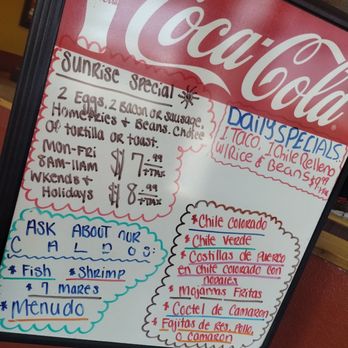 Coca-Cola
Sunrise Special
2 Eggs, 2 Bacon or Sausage,
Homefries & Beans. Choice
of tortilla or toast.
Mon-Fri
8am-11am $7.99 +TAX
Wkends &
Holidays $8.99 +TAX
Daily Specials:
1 Taco, 1 Chile Relleno
w/Rice & Beans
Ask About Our
CALDOS:
* Fish * Shrimp
* 7 mares
* Menudo
* Chile Colorado
* Chile Verde
* Costillas de Puerco
en chile colorado con
nopales
* Mojarras Fritas
* Coctel de Camaron
* Fajitas de Res, Pollo,
o Camaron